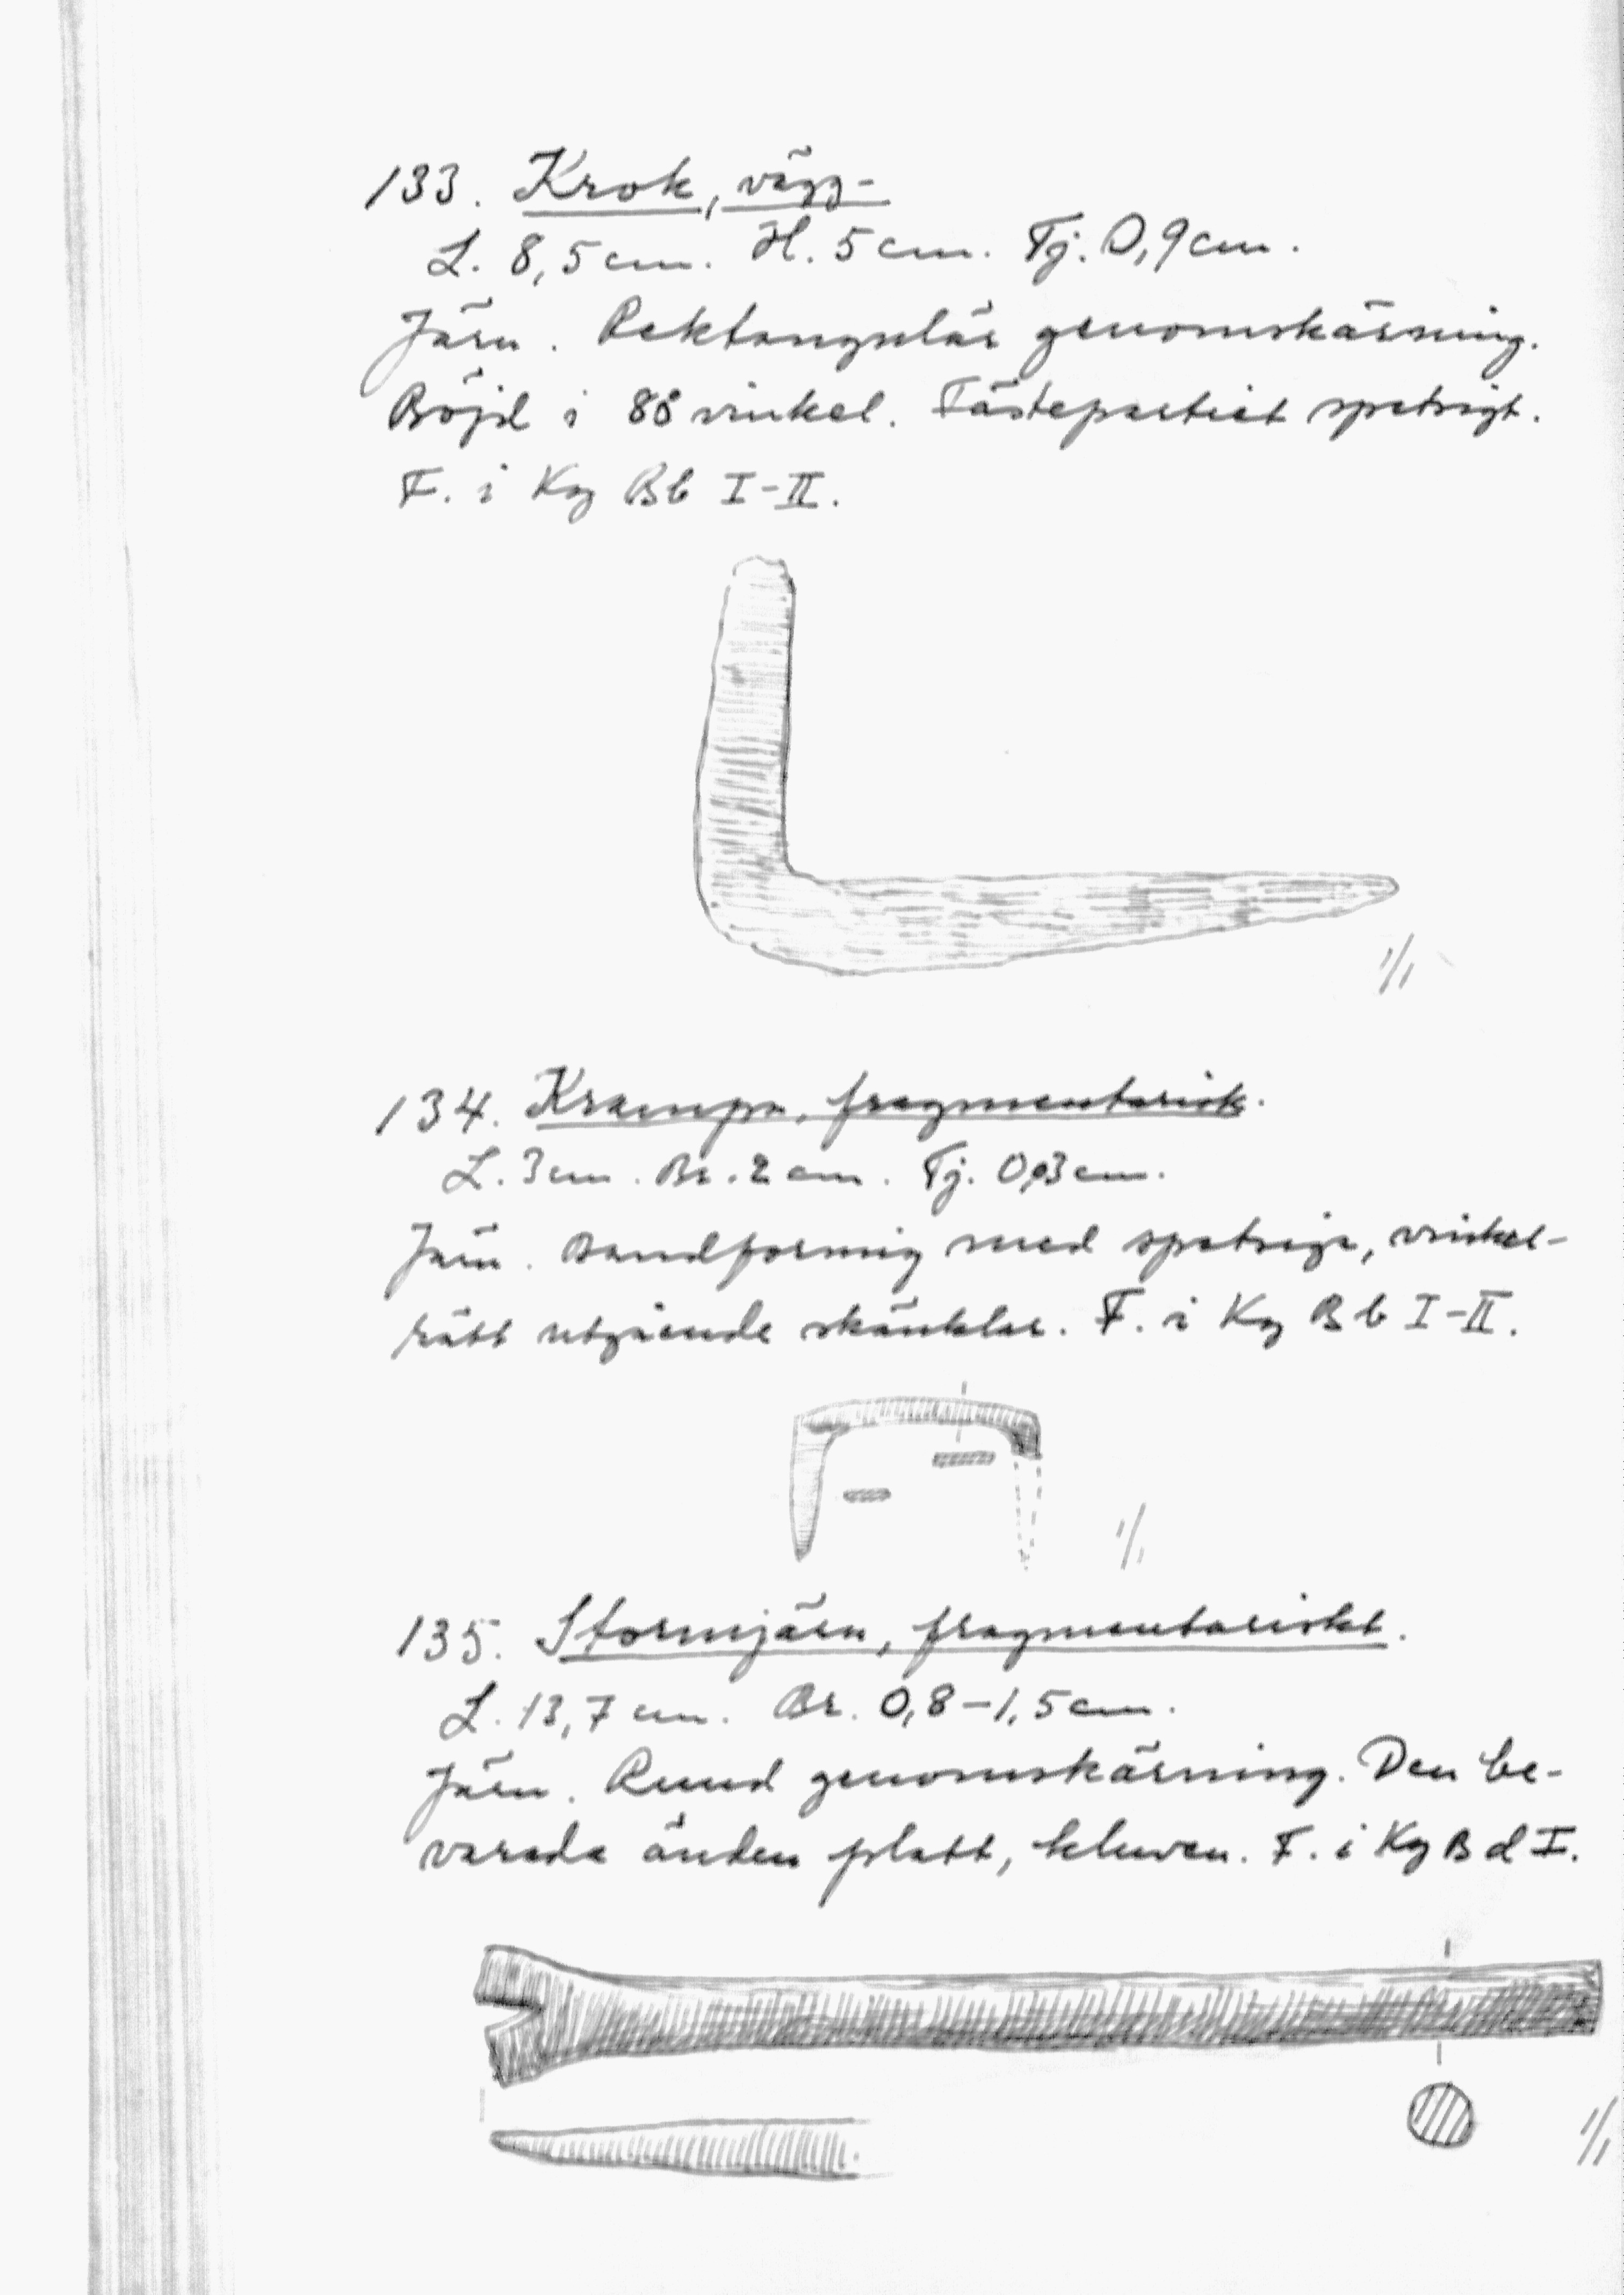 133. Krok, vägg-
L. 8,5 cm. H. 5 cm. Tj. 0,9 cm.
Järn. Rektangulär genomskärning.
Böjd i 88° vinkel. Fästepartiet spetsigt.
F. i Kg Bb I-II.
1/1
134. Krampa, fragmentarisk.
L. 3 cm. Br. 2 cm. Tj. 0,3 cm.
Järn. Bandformig med spetsiga, vinkel-
rätt utgående skänklar. F. i Kg Bb I-II.
1/1
135. Stormjärn, fragmentariskt.
L. 13,7 cm. Br. 0,8-1,5 cm.
Järn. Rund genomskärning. Den be-
varade änden platt, kluven. F. i Kg Bd I.
1/1